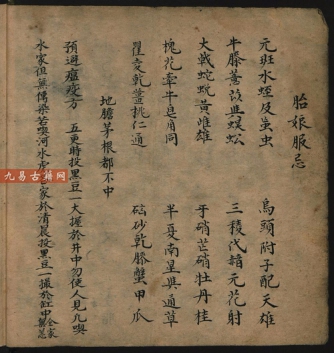 胎娠服忌
元班水蛭及虻虫　烏頭附子配天雄
牛膝薏苡與蜈蚣　三稜代赭元花射
大戟蛇蛻黃雌雄　牙硝芒硝牡丹桂
槐花牽牛皂角同　半夏南星與通草
瞿麥乾薑桃仁通　硇砂乾膝蟹甲瓜
地膽茅根都不中
預避瘟疫方　五更時投黑豆一大握於井中勿使人見凢喫
水家俱無傳染若喫河水之家於清晨投黑豆一撮於缸中
全家
九易古籍网